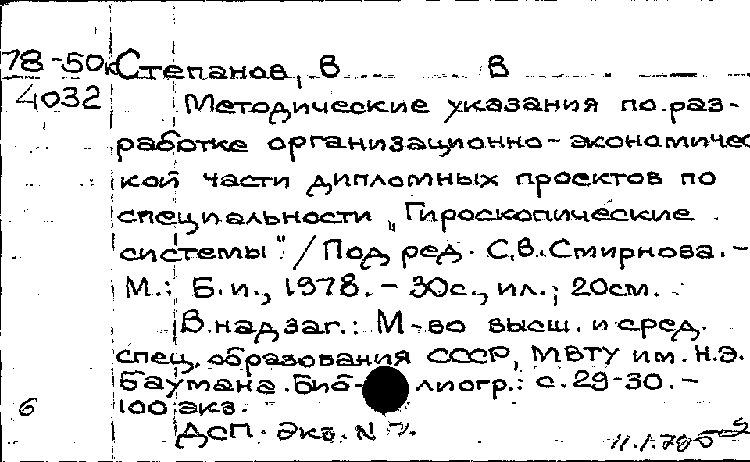 78-50к Степанов, В В
4032 Методические указания по раз-
работке организационно-экономичес
кой части дипломных проектов по
специальности „Гироскопические
системы"/Под ред. С.В.Смирнова.-
М.: Б.и., 1978.-30с., ил.; 20см.
В надзаг.: М-во высш. и сред.
спец. образования СССР, МВТУ им. Н.Э.
Баумана. Биб-лиогр.: с.29-30.-
6 100 экз.
ДСП. Экз. N